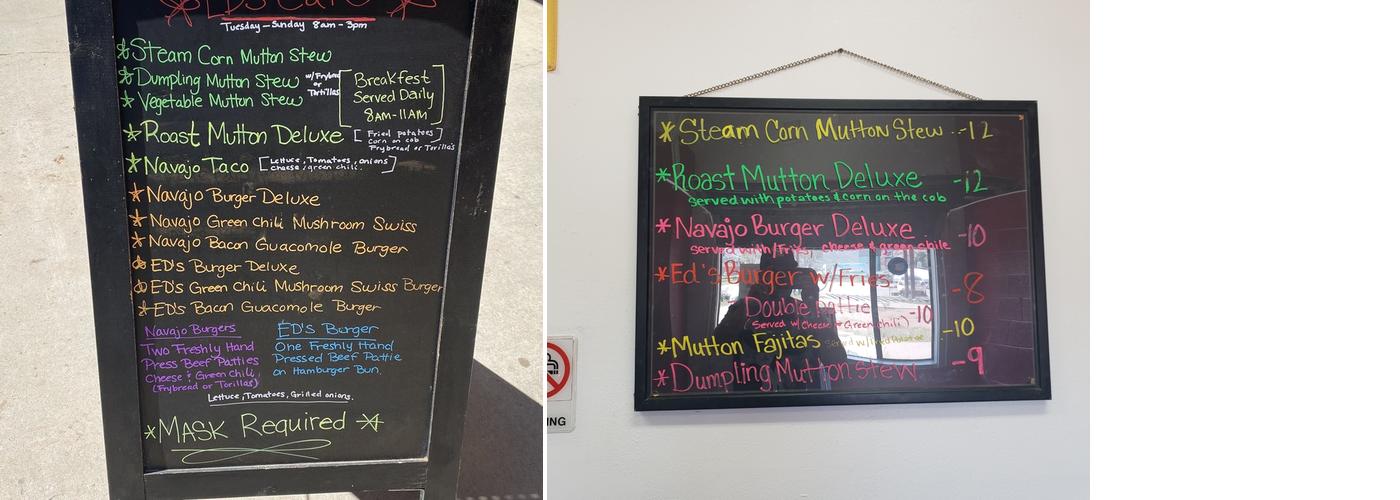 ED's Cafe
Tuesday - Sunday 8am - 3pm
Steam Corn Mutton Stew
Dumpling Mutton Stew
Vegetable Mutton Stew
w/ Frybread
or
Tortillas
Breakfest
Served Daily
8AM-11AM
Roast Mutton Deluxe
Fried potatoes
corn on cob
Frybread or Torilla's
Navajo Taco
Lettuce, Tomatoes, onions
cheese, green chili.
Navajo Burger Deluxe
Navajo Green Chili Mushroom Swiss
Navajo Bacon Guacomole Burger
ED'S Burger Deluxe
ED'S Green Chili Mushroom Swiss Burger
ED'S Bacon Guacomole Burger
Navajo Burgers
Two Freshly Hand
Press Beef Patties
Cheese & Green Chili,
(Frybread or Torillas)
ED'S Burger
One Freshly Hand
Pressed Beef Pattie
on Hamburger Bun.
Lettuce, Tomatoes, Grilled onions.
MASK Required
Steam Corn Mutton Stew -12
Roast Mutton Deluxe -12
Served with potatoes & corn on the cob
Navajo Burger Deluxe -10
served with/Fries, cheese & green chile
Ed's Burger w/Fries -8
- Double Pattie -10
(Served w/ Cheese & Green Chili)
Mutton Fajitas Served w/fried Potatoe -10
Dumpling Mutton stew. -9
ING